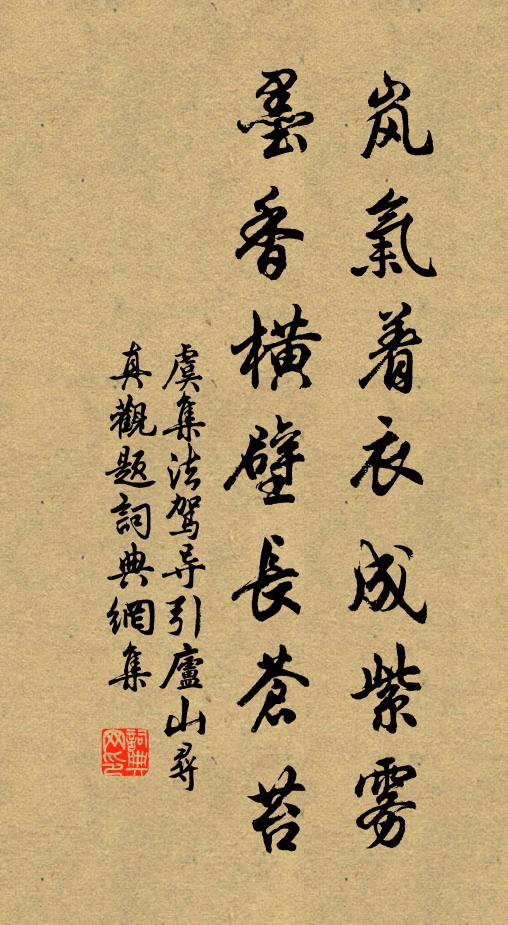 岚氣着衣成紫雾
墨香横壁長蒼苔
虞集法驾导引廬山尋
真觀题詞典網集
詞典網印